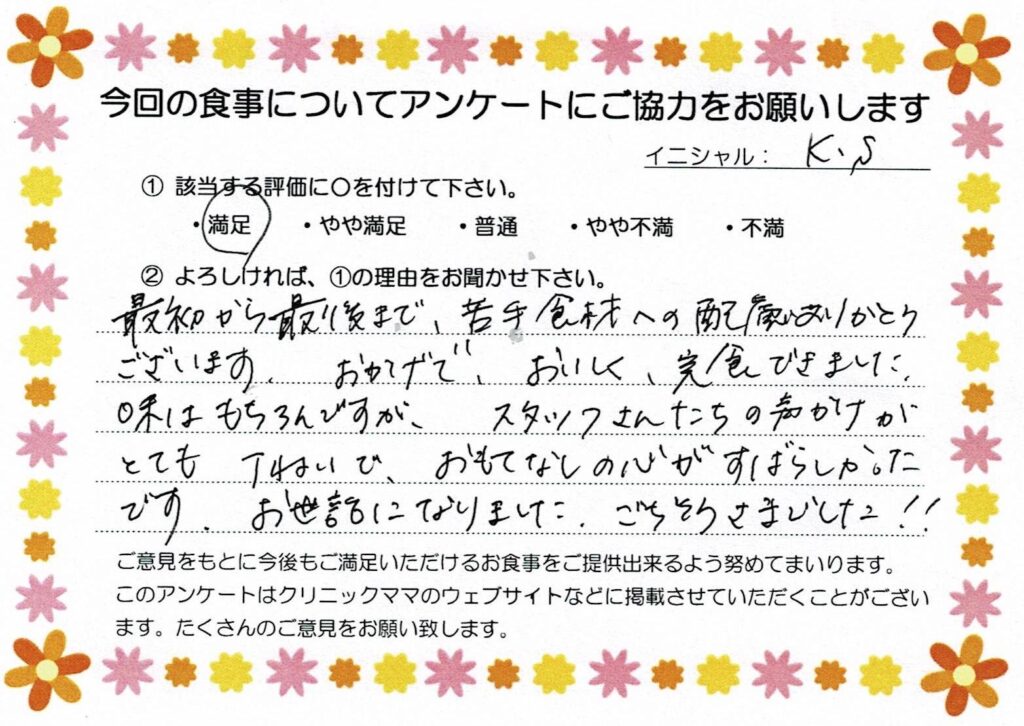 今回の食事についてアンケートにご協力をお願いします
イニシャル： K.S
① 該当する評価に○を付けて下さい。
・満足 ・やや満足 ・普通 ・やや不満 ・不満
② よろしければ、①の理由をお聞かせ下さい。
最初から最後まで、苦手食材への配慮ありがとう
ございます。おかげで、おいしく、完食できました。
味はもちろんですが、スタッフさんたちの声かけが
とても丁ねいで、おもてなしの心がすばらしかった
です。お世話になりました。ごちそうさまでした!!
ご意見をもとに今後もご満足いただけるお食事をご提供出来るよう努めてまいります。
このアンケートはクリニックママのウェブサイトなどに掲載させていただくことがござい
ます。たくさんのご意見をお願い致します。